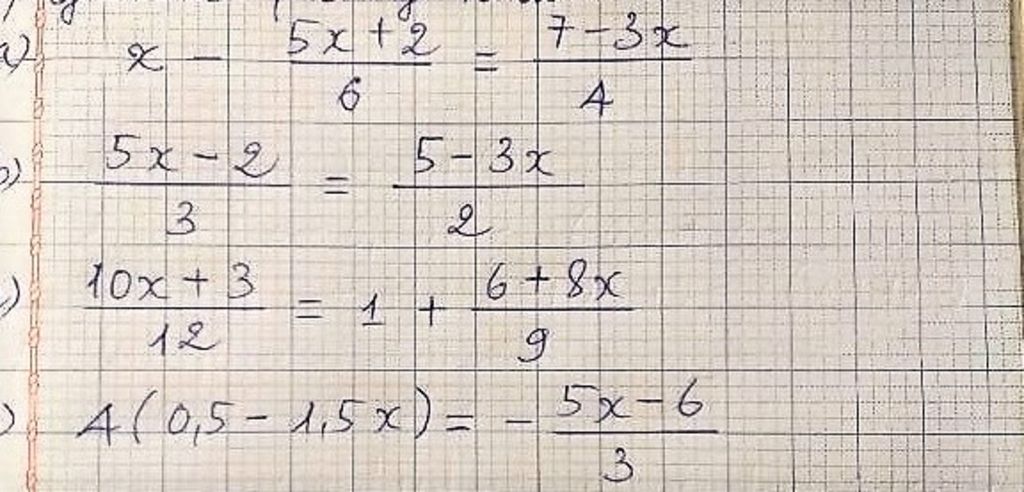 a) x - (5x + 2)/6 = (7 - 3x)/4
b) (5x - 2)/3 = (5 - 3x)/2
c) (10x + 3)/12 = 1 + (6 + 8x)/9
) 4(0,5 - 1,5x) = - (5x - 6)/3